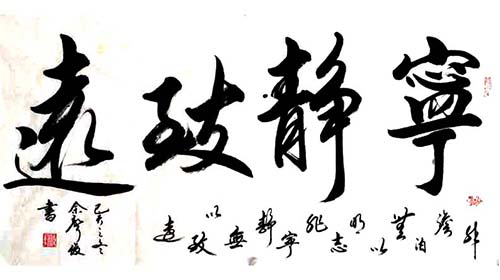 寧靜致遠
非澹泊無以明志非寧靜無以致遠
己亥之冬
余
書